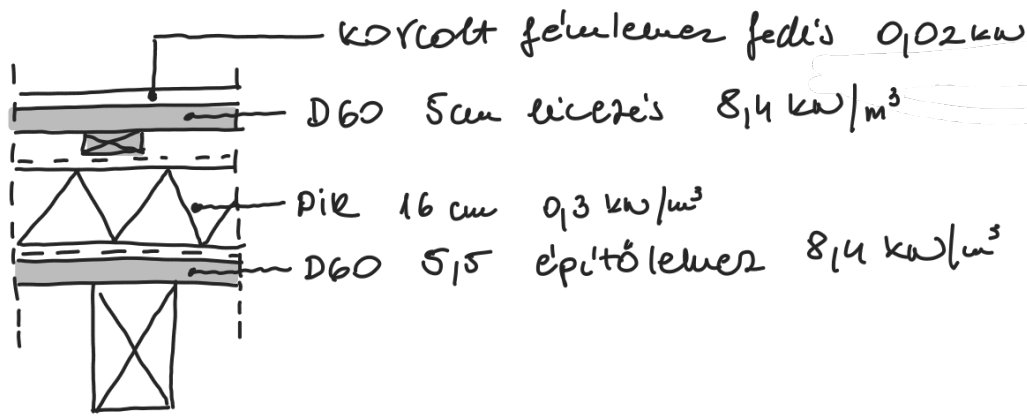 korcolt fémlemez fedés 0,02 kN
D60 5cm lécezés 8,4 kN/m³
PIR 16 cm 0,3 kN/m³
D60 5,5 építőlemez 8,4 kN/m³